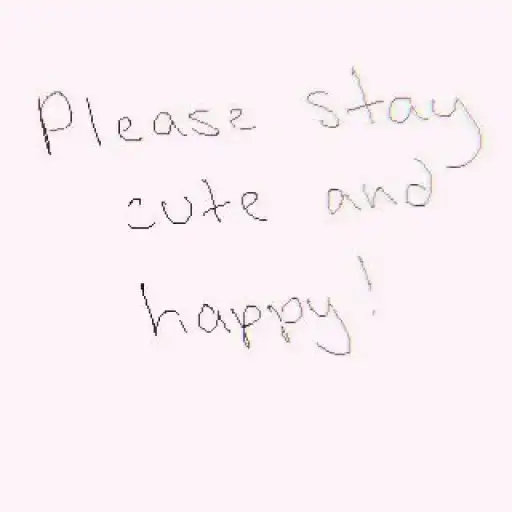 Please stay
cute and
happy!